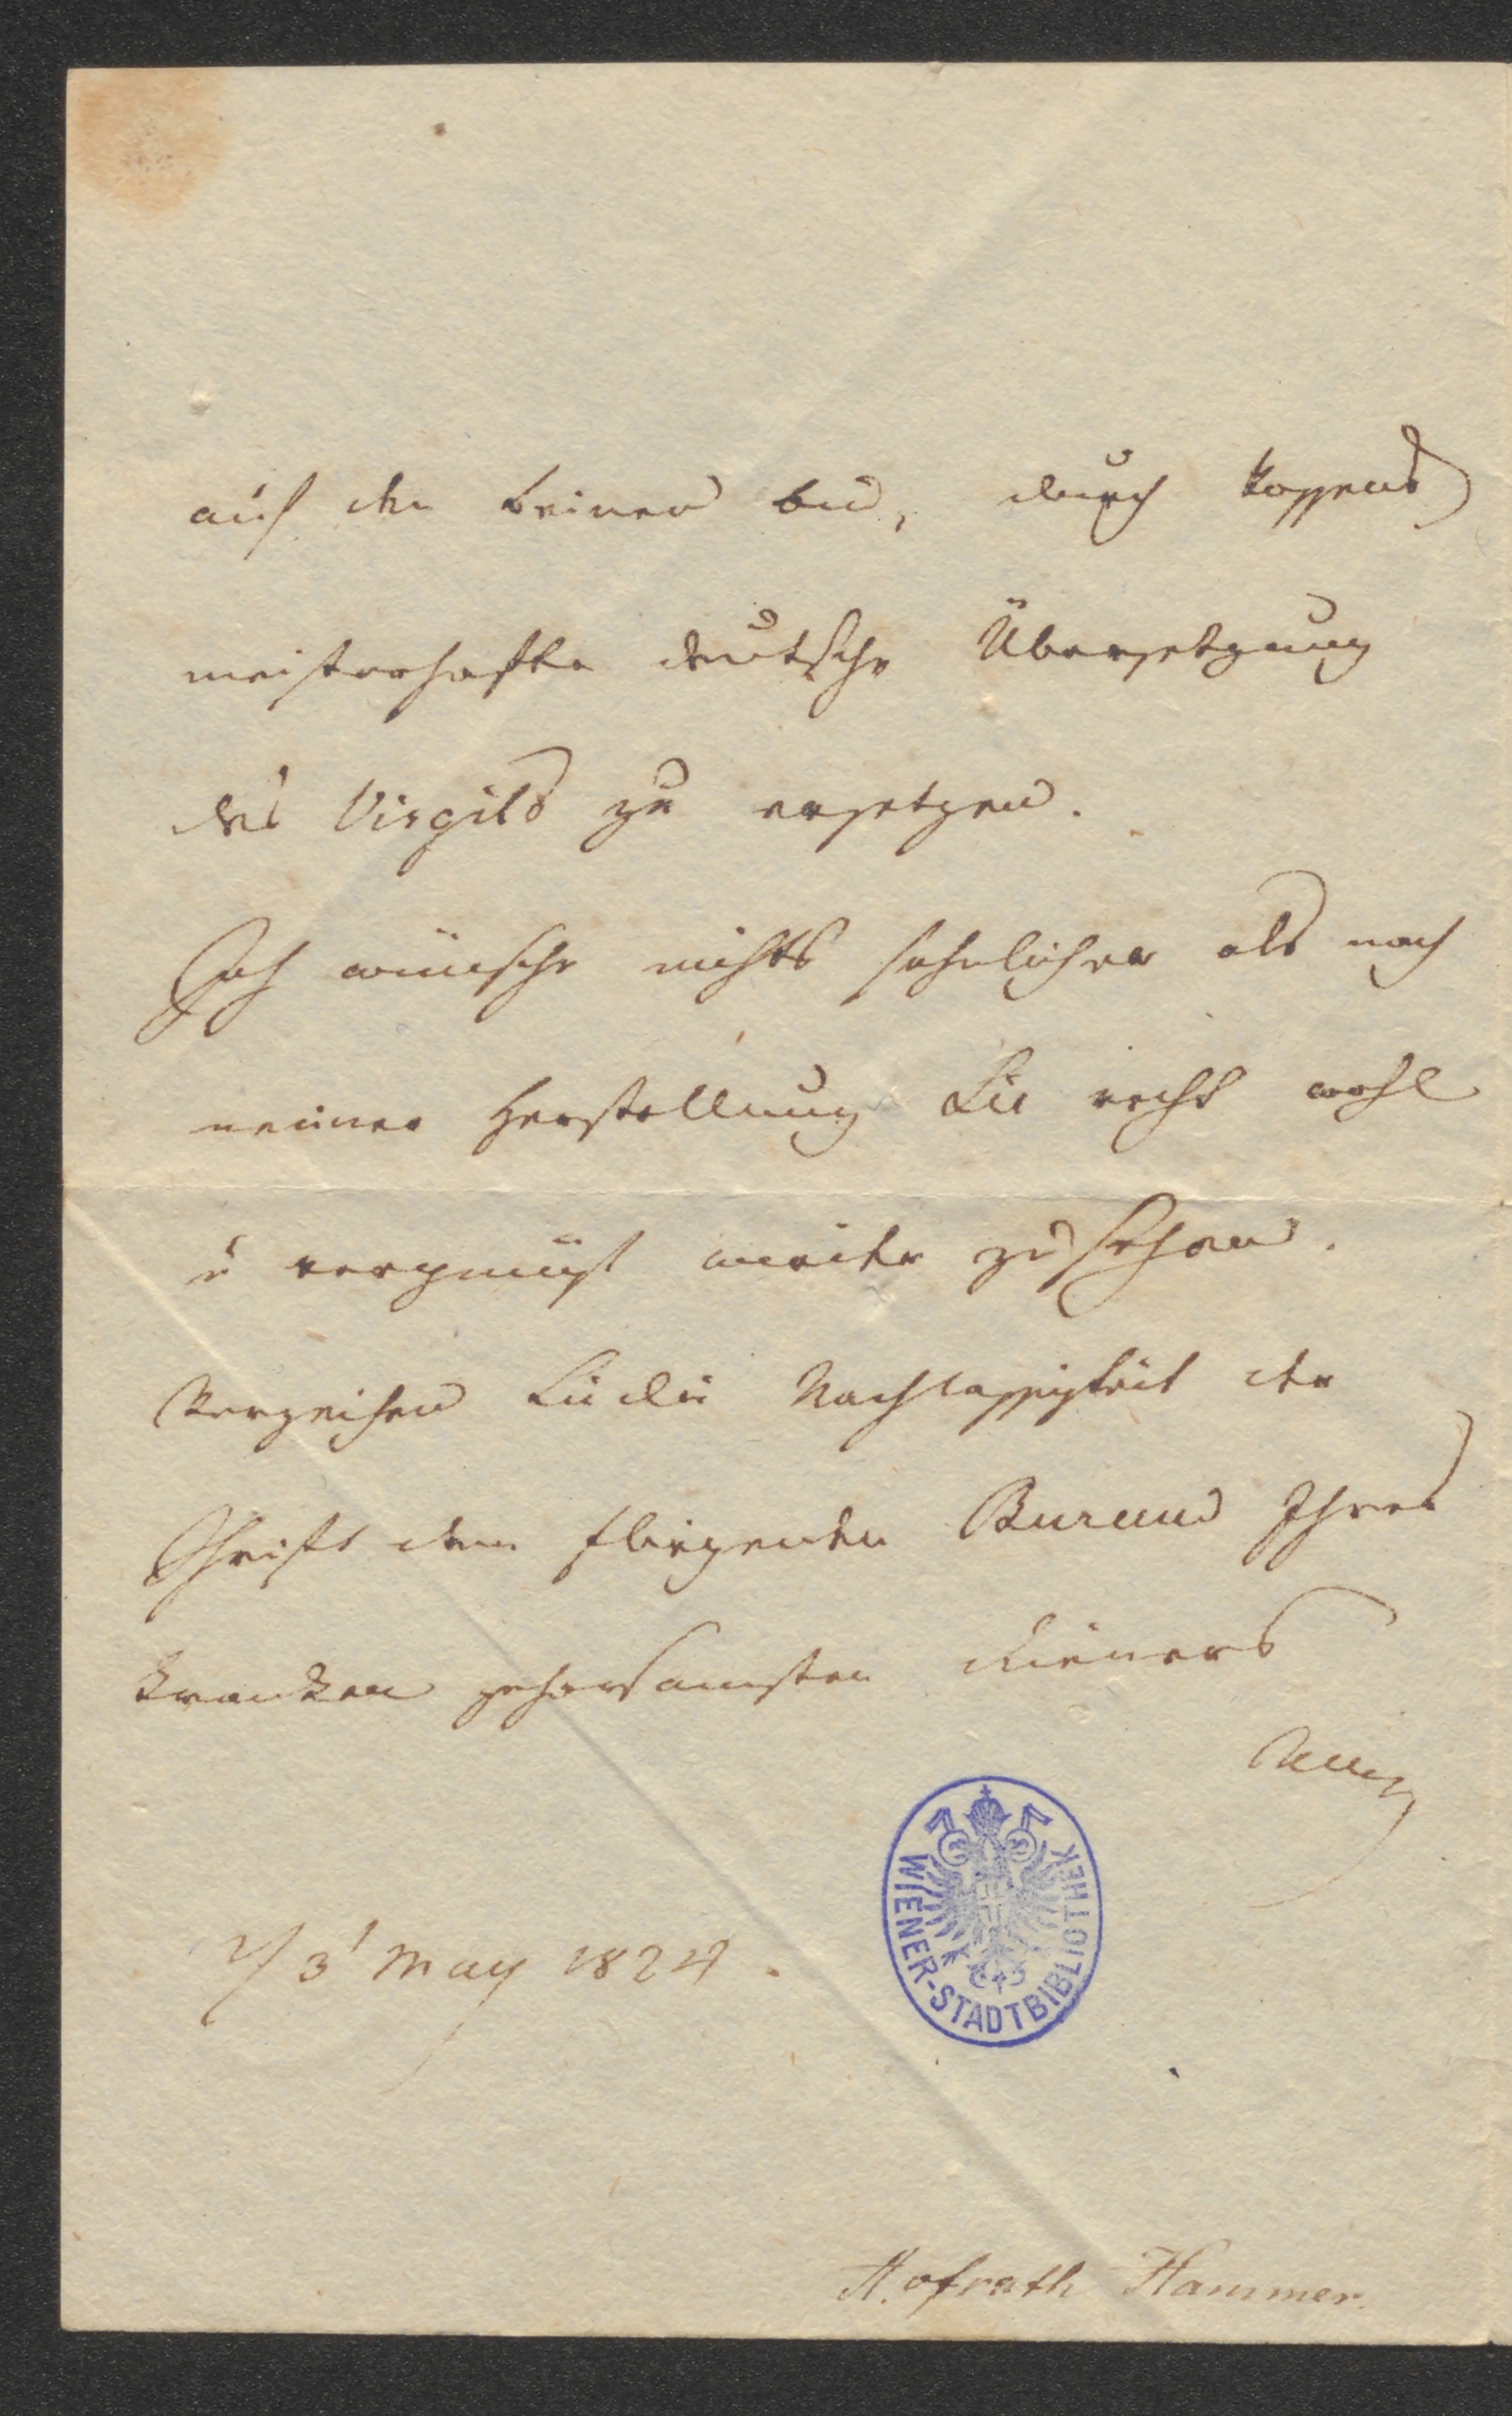 auf den beinen bin, durch Voßens
meisterhafte deutsche Übersetzung
des Virgils zu ersetzen.
Ich wünsche nichts sehnlicher als nach
meiner Herstellung Sie recht wohl
u vergnügt wieder zu sehen.
Verzeihen Sie die Nachlaßigkeit der
Schrift dem fliegenden Ihres
kranken gehorsamsten Dieners
3' May 1824.
WIENER-STADTBIBLIOTHEK
Hofrath Hammer.